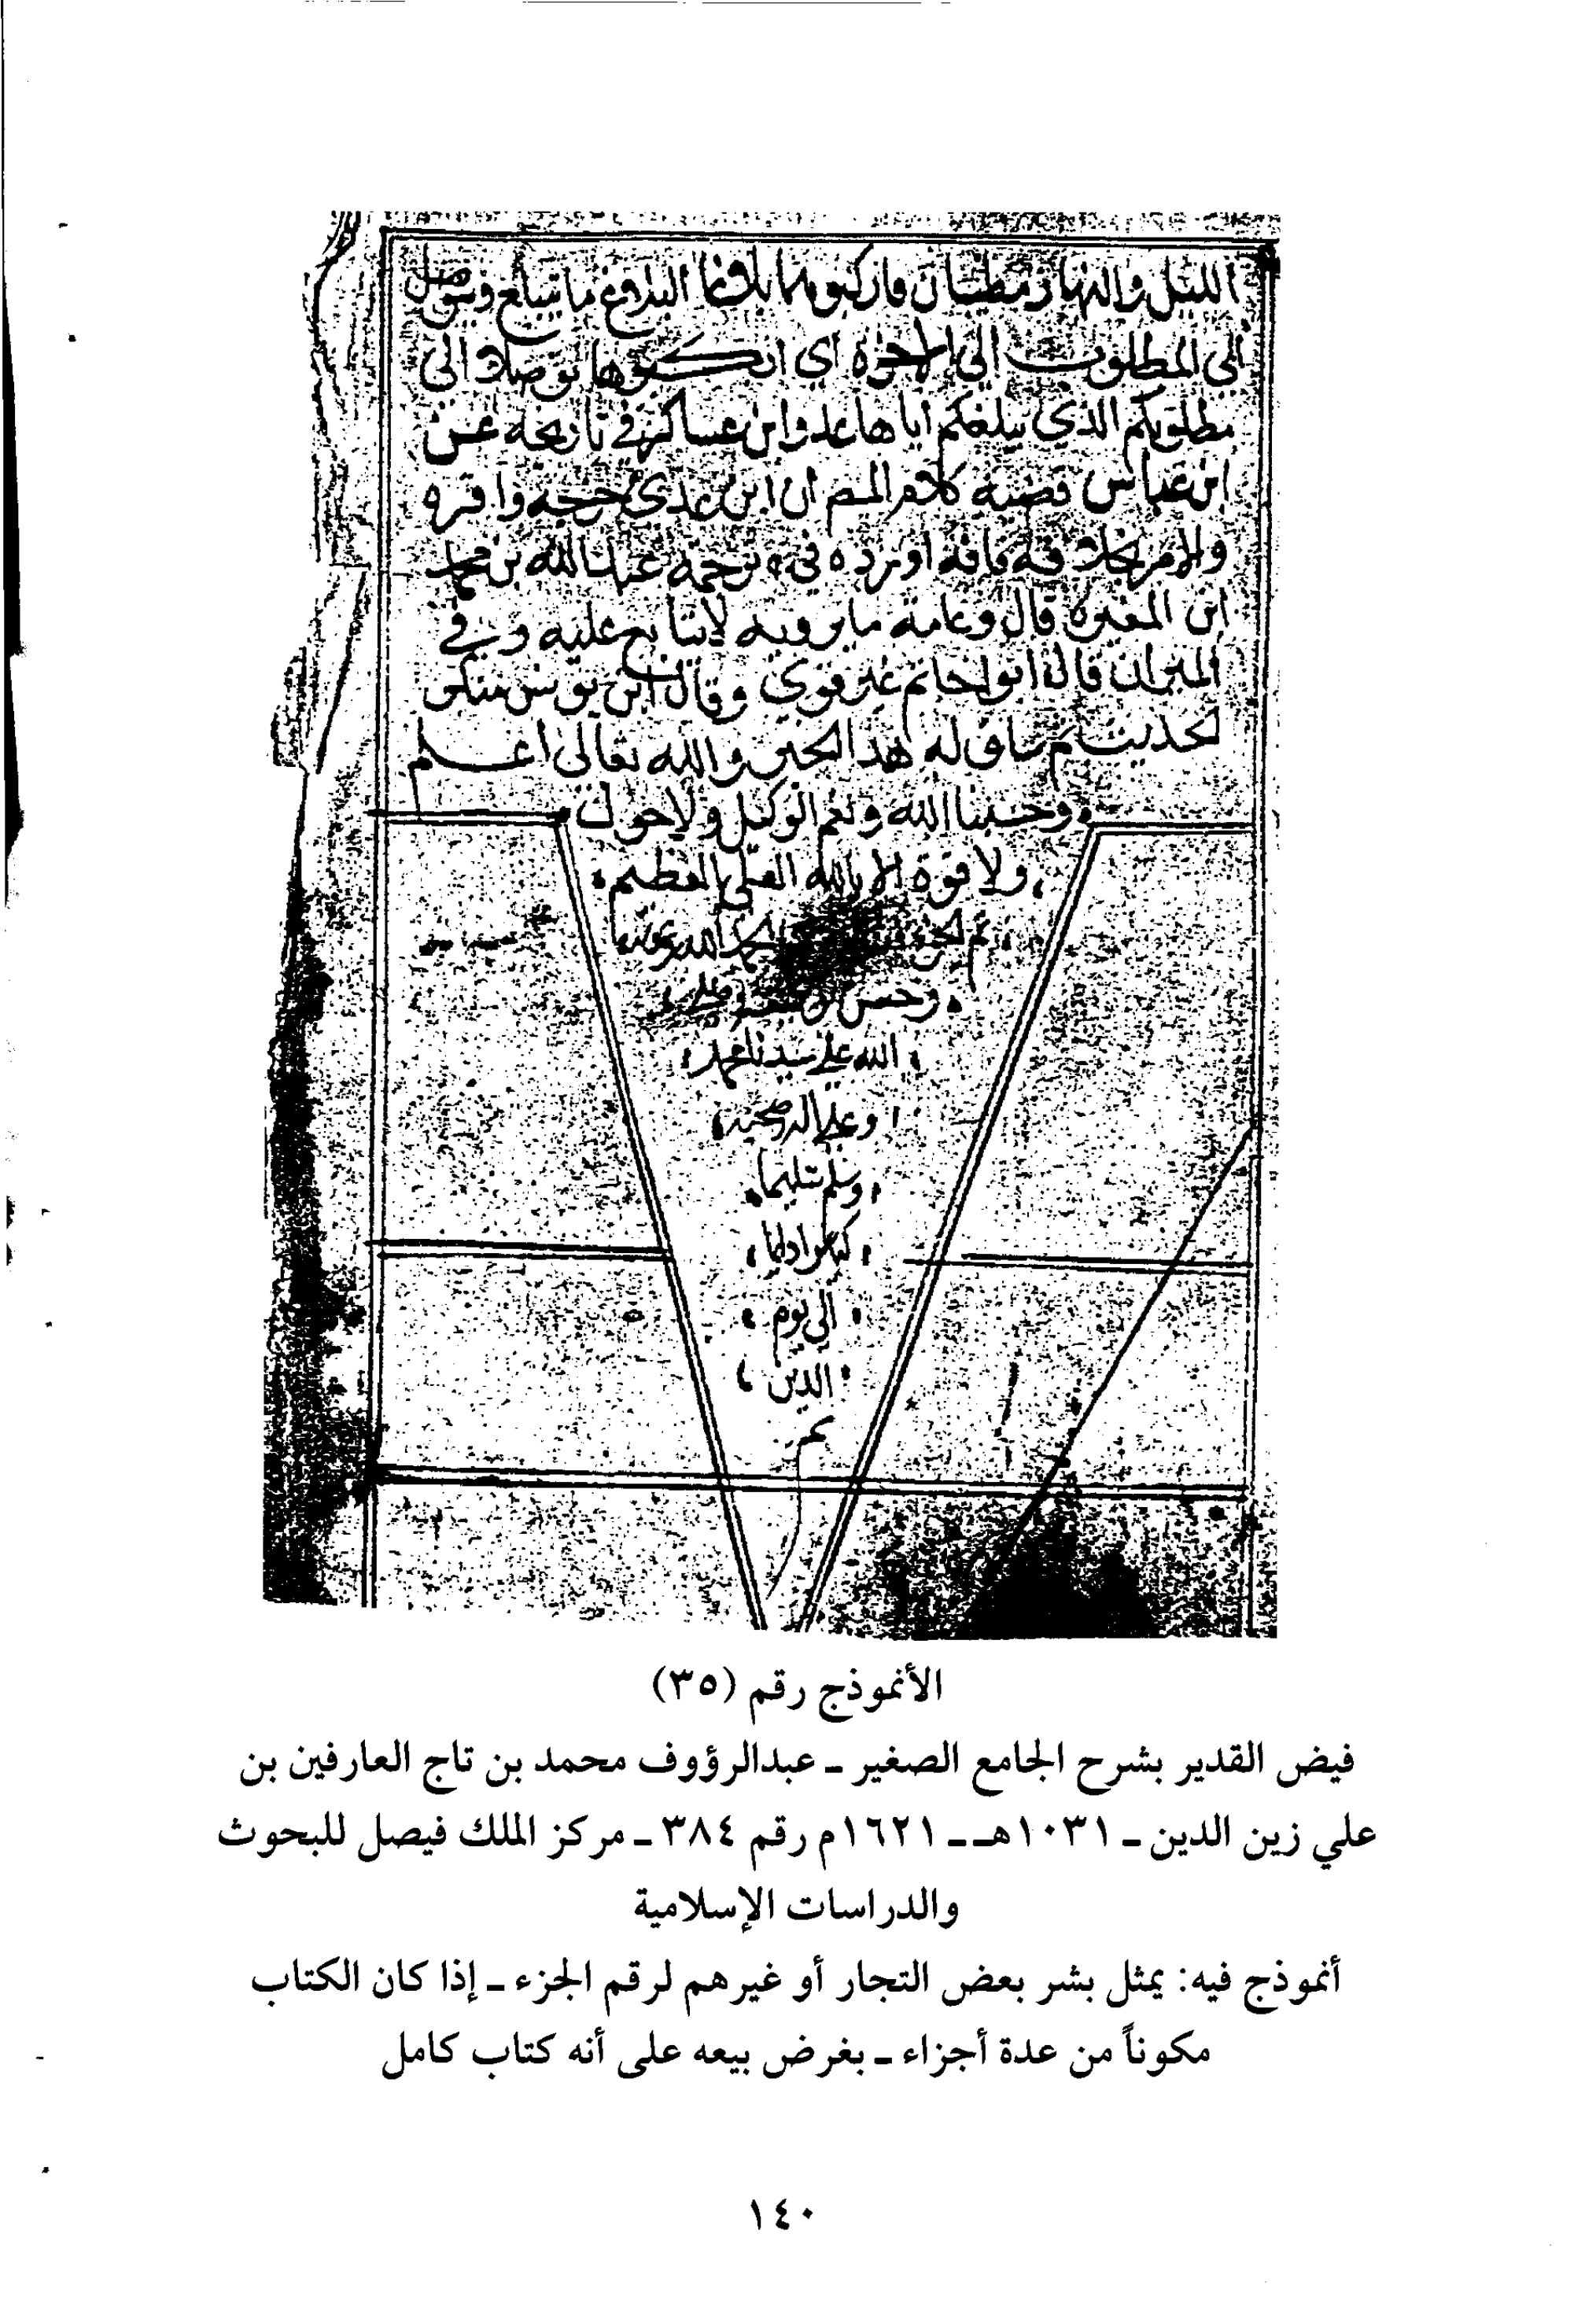 الليل والنهار مطيتان فاركبوهما بلاغا البلاغ ما يتبلغ ويتوصل
الى المطلوب الى الاخرة اي اركبوها توصلا الى
مطلوبكم الذي يبلغكم اياها عد وابن عساكر في تاريخه عن
ابن عباس قضية كلام المصـ ان ابن عدي خرجه واقره
والامر بخلافه فانه اورده في ترجمة عبد الله بن محمد
ابن المغيرة قال وعامة ما يرويه لا يتابع عليه وفي
الميزان قال ابو حاتم غير قوي وقال ابن يونس منكر
لحديث ثم ساق له هذا الخبر والله تعالى اعلم
وحسبنا الله ونعم الوكيل ولا حول
ولا قوة الا بالله العلي العظيم
تم الجزء بحمد الله وعونه
وحسن توفيقه وصلى
الله على سيدنا محمد
وعلى اله وصحبه
وسلم تسليما
كثيرا دايما
الى يوم
الدين
تم
الأنموذج رقم (٣٥)
فيض القدير بشرح الجامع الصغير ـ عبدالرؤوف محمد بن تاج العارفين بن
علي زين الدين ـ ١٠٣١هـ ـ ١٦٢١م رقم ٣٨٤ ـ مركز الملك فيصل للبحوث
والدراسات الإسلامية
أنموذج فيه: يمثل بشر بعض التجار أو غيرهم لرقم الجزء ـ إذا كان الكتاب
مكوناً من عدة أجزاء ـ بغرض بيعه على أنه كتاب كامل
١٤٠